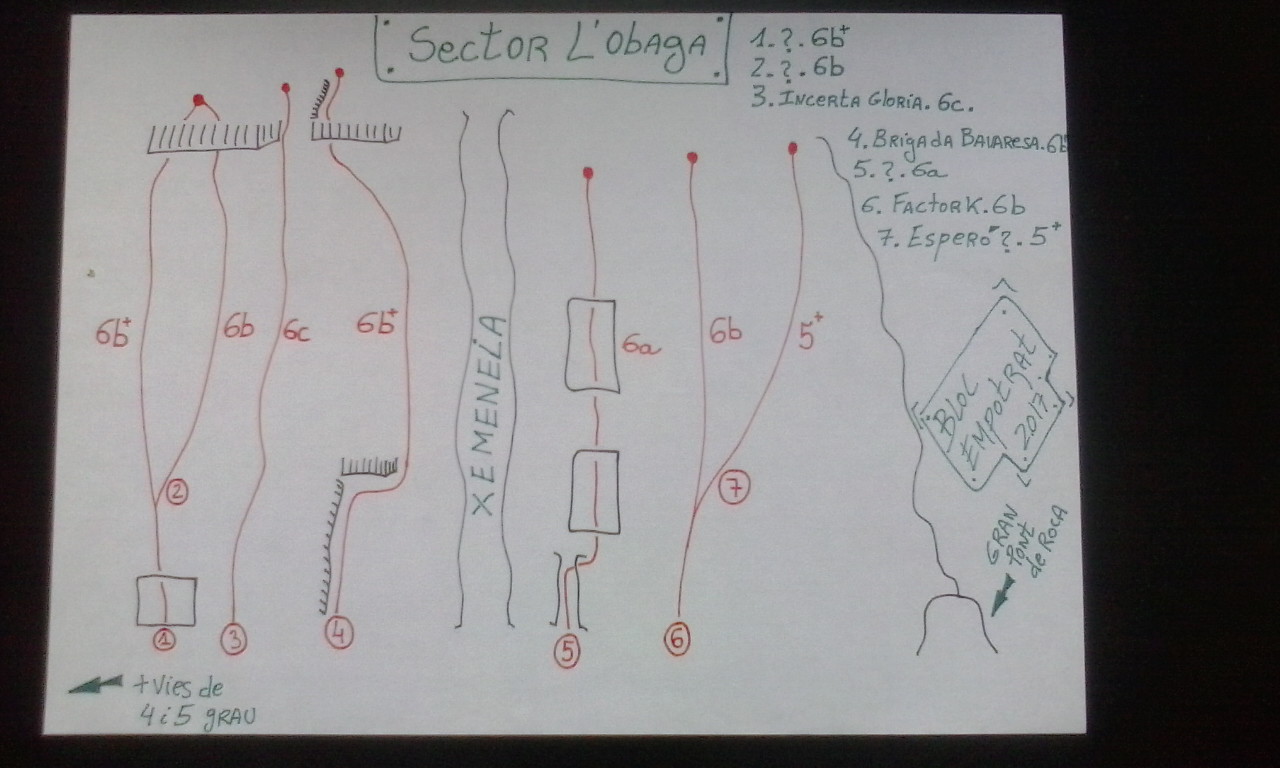 Sector L'Obaga
1. ?. 6b+
2. ?. 6b
3. Incerta Gloria. 6c.
4. Brigada Bavaresa. 6b+
5. ?. 6a
6. Factor K. 6b
7. Esperó ?. 5+
6b+
6b
6c
6b+
XEMENEIA
6a
6b
5+
BLOC
EMPOTRAT
2017.
GRAN
PONT
de ROCA
2
7
1
3
4
5
6
+ Vies de
4 i 5 grau